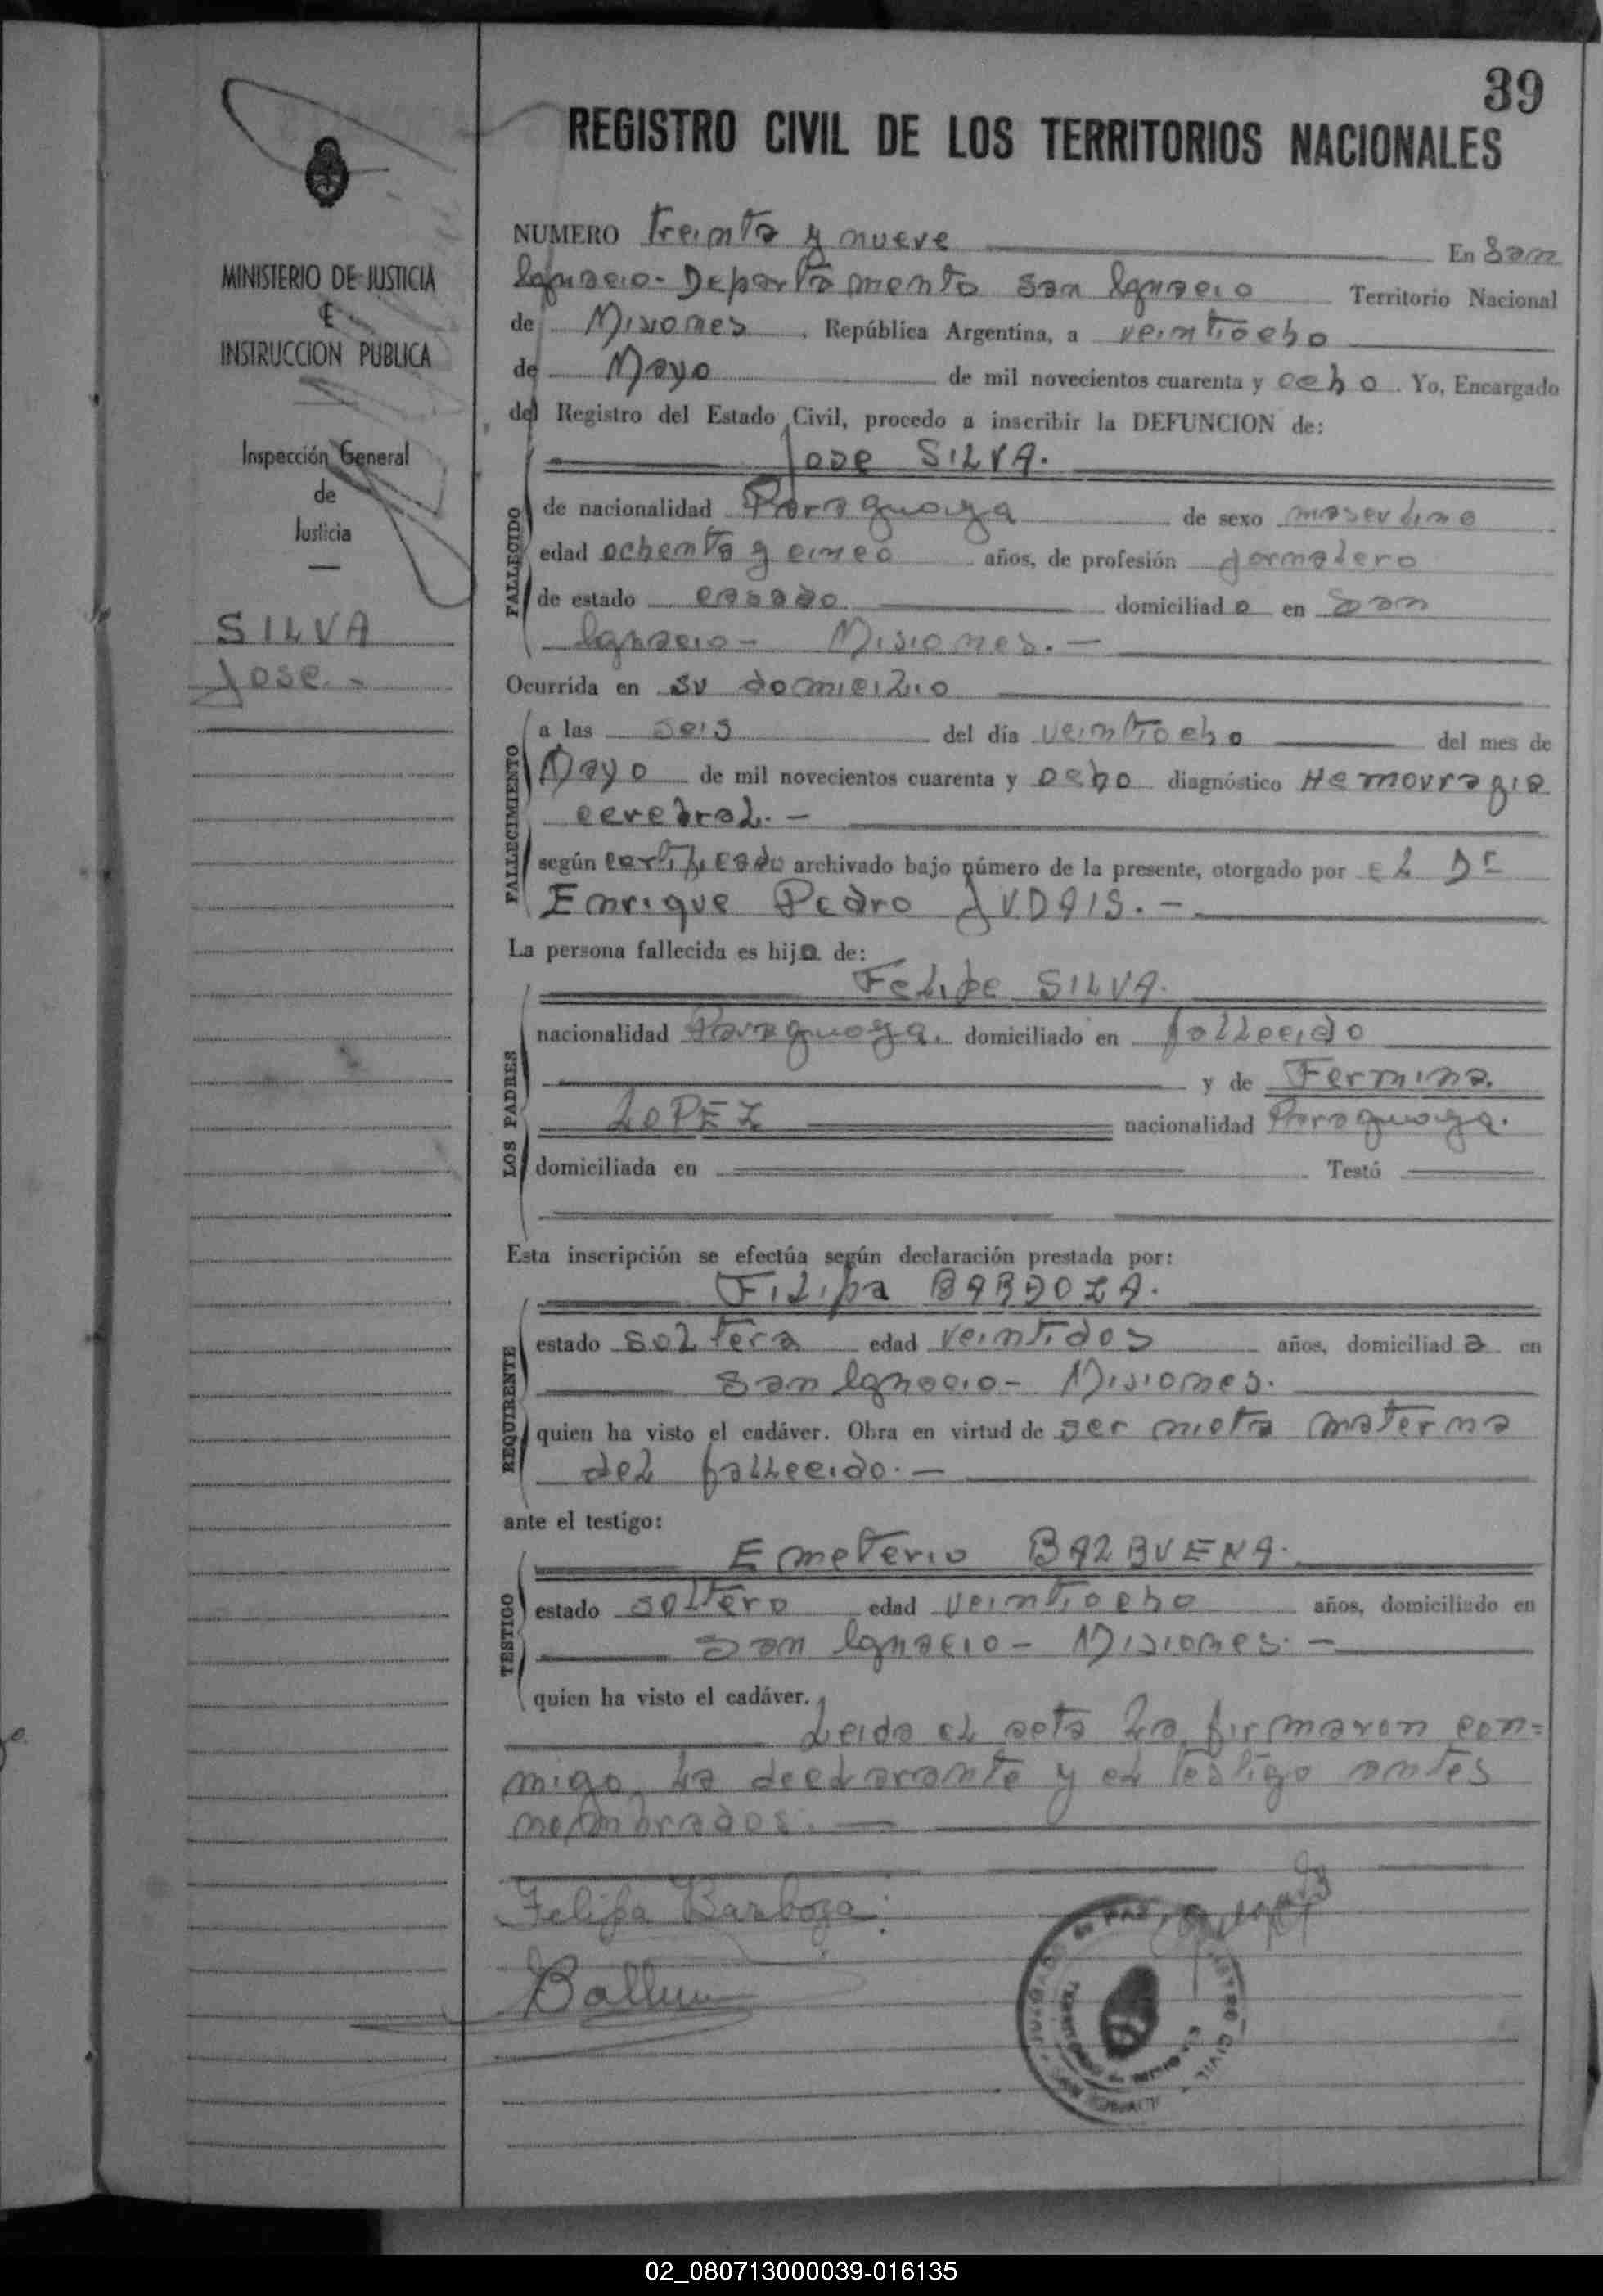 39
REGISTRO CIVIL DE LOS TERRITORIOS NACIONALES
MINISTERIO DE JUSTICIA
E
INSTRUCCION PUBLICA
Inspección General
de
Justicia
SILVA
Jose.-
NUMERO Treinta y nueve En San
Ignacio- Departamento San Ignacio Territorio Nacional
de Misiones, República Argentina, a veintiocho
de Mayo de mil novecientos cuarenta y ocho. Yo, Encargado
del Registro del Estado Civil, procedo a inscribir la DEFUNCION de:
Jose SILVA.
FALLECIDO
de nacionalidad Paraguaya de sexo masculino
edad ochenta y cinco años, de profesión jornalero
de estado casado domiciliado en San
Ignacio- Misiones.-
Ocurrida en su domicilio
FALLECIMIENTO
a las seis del día veintiocho del mes de
Mayo de mil novecientos cuarenta y ocho diagnóstico Hemorragia
cerebral.-
según certificado archivado bajo número de la presente, otorgado por el Dr
Enrique Pedro JUDAIS.-
La persona fallecida es hijo de:
LOS PADRES
Felipe SILVA.
nacionalidad Paraguaya. domiciliado en fallecido
y de Fermina.
LOPEZ nacionalidad Paraguaya.
domiciliada en Testó
Esta inscripción se efectúa según declaración prestada por:
REQUIRENTE
Filipa BARBOZA.
estado soltera edad veintidos años, domiciliada en
San Ignacio- Misiones.
quien ha visto el cadáver. Obra en virtud de ser nieta materna
del fallecido.-
ante el testigo:
TESTIGO
Emeterio BALBUENA.
estado soltero edad veintiocho años, domiciliado en
San Ignacio- Misiones.-
quien ha visto el cadáver.
Leida el acta la firmaron con=
migo la declarante y el testigo antes
nombrados.-
Felipa Barboza.
02_080713000039-016135